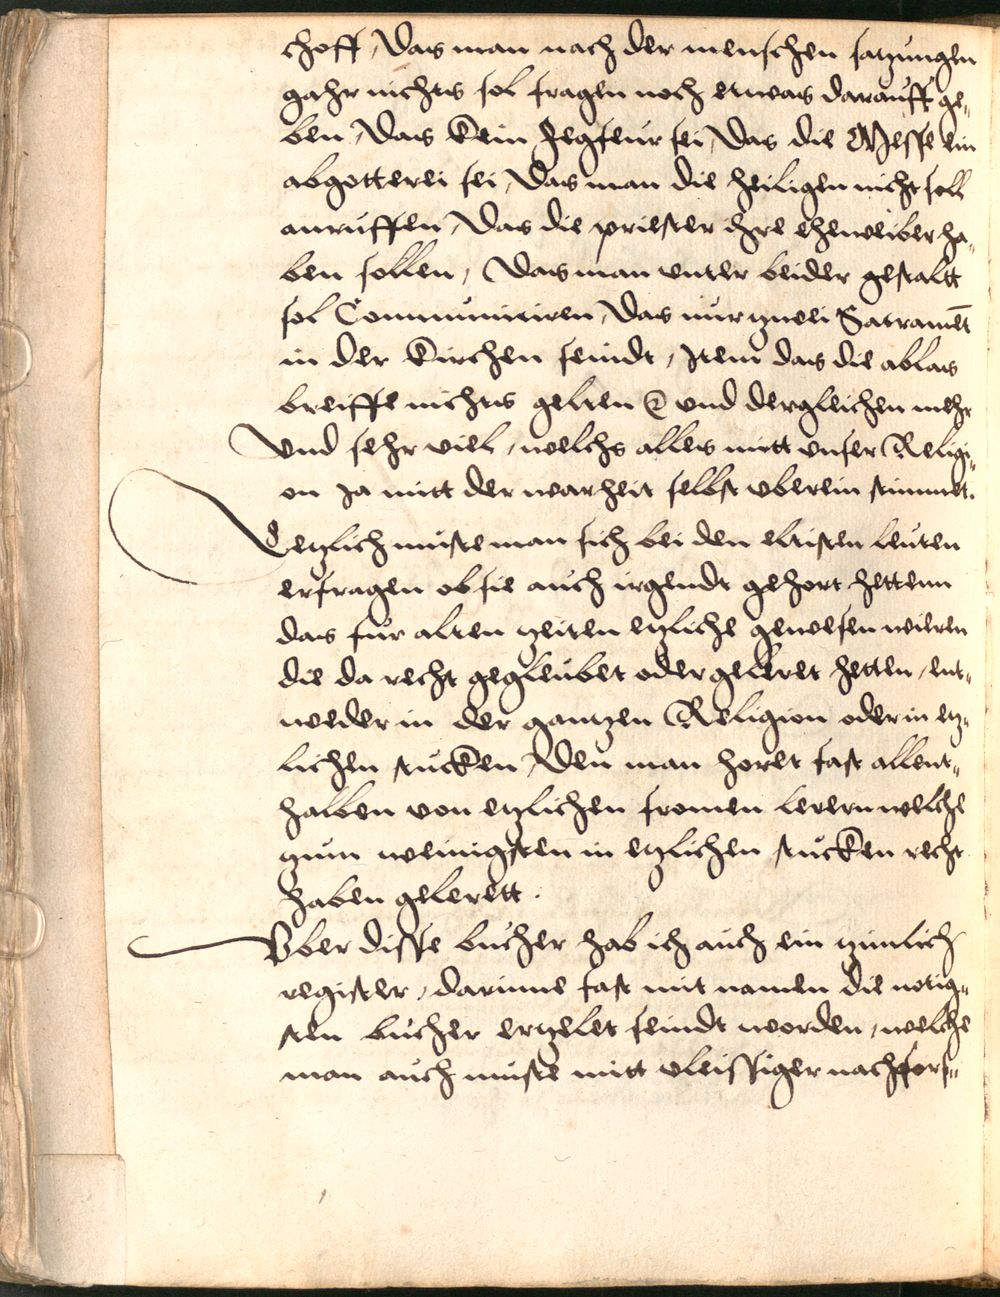 choff, Das man nach der menschen satzungen
gahr nichts sol fragen noch etwas darauff ge-
ben, Das kein Fegfeur sei, Das die Messe ein
abgotterei sei, Das man die heiligen nicht soll
anruffen, Das die priester ihre eheweiber ha-
ben sollen, Das man unter beider gestaltt
sol Communiciren, Das nur zwei Sacramēt
in der kirchen seindt, Item das die ablas
breiffe nichts gelten und dergleichen mehr
Und sehr viel, welchs alles mitt unser Religi-
on Ja mitt der warheit selbst uberein stimmet.
Letzlich muste man sich bei den eltisten leuten
erfragen ob sie auch irgendt gehort hettenn
das fur alten zeiten etzliche gewesen weren
die da recht gegleubet oder geleret hetten, ent-
weder in der gantzen Religion oder in etz-
lichen stucken, Den man horet fast allent-
halben von etzlichen fromen lerern welche
zum weinigsten in etzlichen stucken recht
haben gelerett.
Uber disse bucher hab ich auch ein zimlich
register, darinne fast mit namen die notig-
sten bucher erzelet seindt worden, welche
man auch muste mitt vleissiger nachfors-